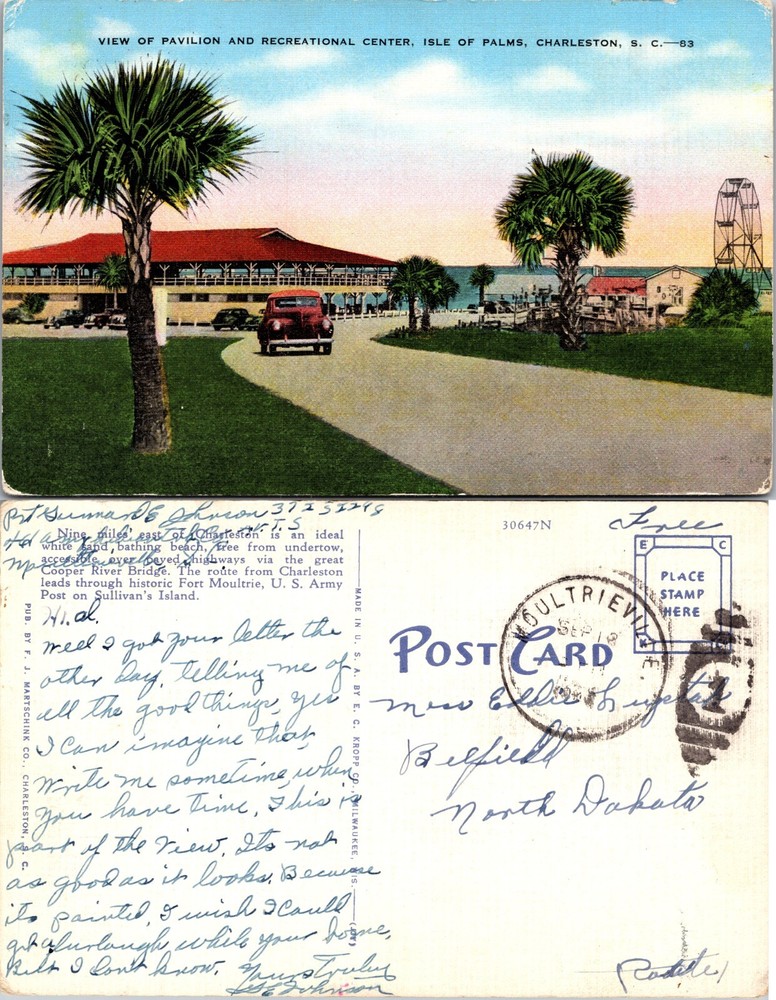 VIEW OF PAVILION AND RECREATIONAL CENTER, ISLE OF PALMS, CHARLESTON, S. C.—83
Pvt Gunnar E Johnson
Nine miles east of Charleston is an ideal
white sand bathing beach, free from undertow,
accessible over paved highways via the great
Cooper River Bridge. The route from Charleston
leads through historic Fort Moultrie, U. S. Army
Post on Sullivan's Island.
PUB. BY F. J. MARTSCHINK CO., CHARLESTON, S. C.
Hi.
Well I got your letter the
other day, telling me of
all the good things, yes
I can imagine that,
Write me sometime, when
you have time, This is
part of the View. Its not
as good as it looks. Because
its painted, I wish I could
get a furlough, while your home,
But I don't know. Yours Truly
G E Johnson
MADE IN U. S. A. BY E. C. KROPP CO., MILWAUKEE, WIS.
30647N
Free
E C
PLACE
STAMP
HERE
POST CARD
MOULTRIEVILLE
SEP
Miss Eddie
Belfield
North Dakota